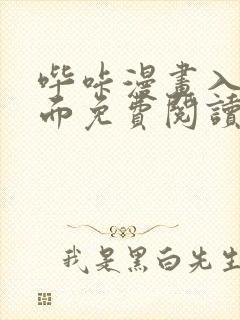 哔咔漫畫入
而免費閱讀
我是黑白先生